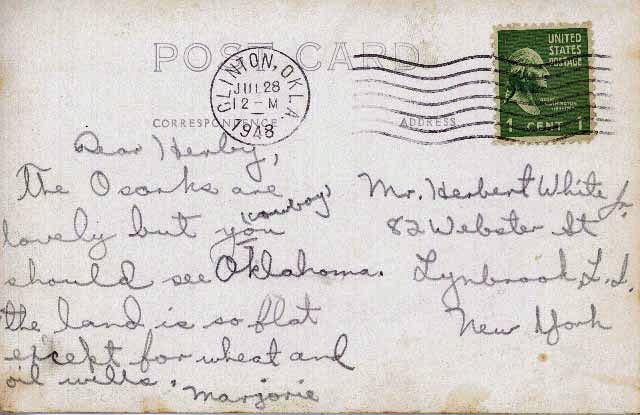 POST CARD
CLINTON, OKLA
JUL 28
12 - M
1948
UNITED
STATES
POSTAGE
1 CENT 1
CORRESPONDENCE
ADDRESS
Dear Herby,
The Osarks are
lovely but you
(cowboy)
should see Oklahoma.
the land is so flat
except for wheat and
oil wells.
Marjorie
Mr. Herbert White Jr.
82 Webster St
Lynbrook, L.I.
New York